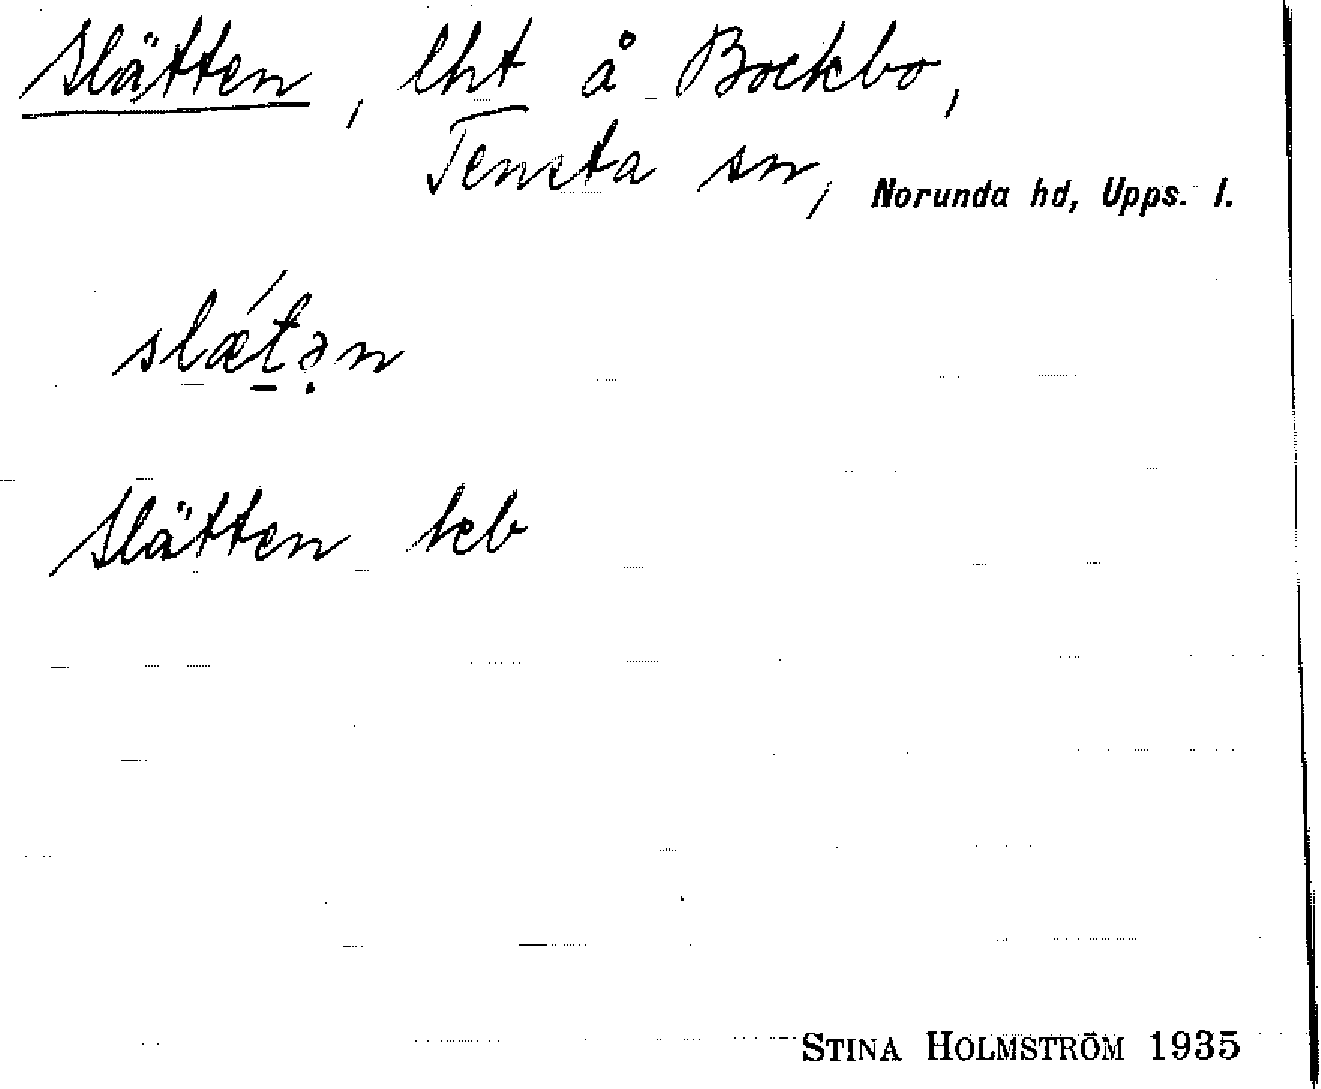 Slätten, lht å Bockbo,
Tensta sn, Norunda hd, Upps. l.
slǽt̠ə̣n
Slätten keb
STINA HOLMSTRÖM 1935